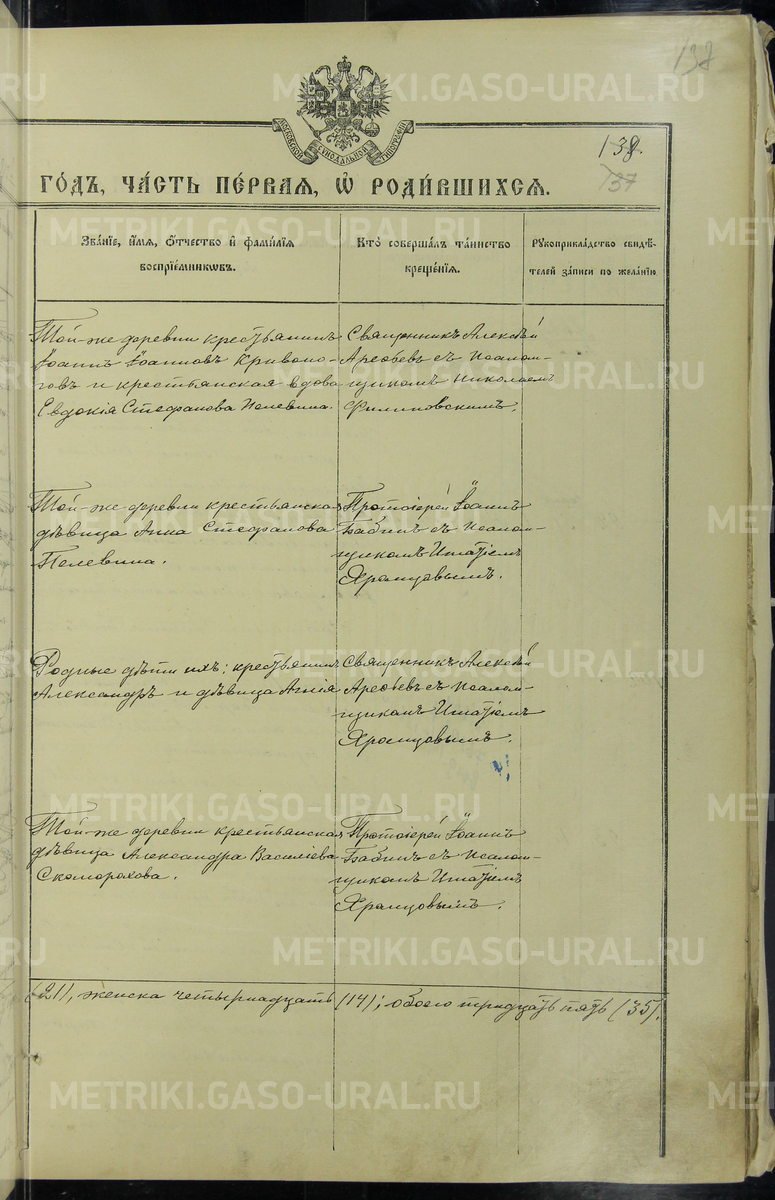 137
МОСКОВСКОЙ СѴНОДАЛЬНОЙ ТИПОГРАФІИ
138.
137
ГО́ДЪ, ЧА́СТЬ ПЕ́РВАЯ, Ѡ҆ РОДИ́ВШИХСЯ.
Зва́нїе, и҆́мя, ѻ҆́тчество и҆ фами́лїя
воспрїе́мникѡвъ.
Кто̀ соверша́лъ та́инство
креще́нїя.
Рꙋкоприкла́дство свидѣ́-
телей за́писи по жела́нїю
Той-же деревни крестьянинъ
Іоаннъ Іоанновъ Кривоно-
говъ и крестьянская вдова
Евдокія Стефанова Пелевина.
Священникъ Алексѣй
Арефьевъ съ псалом-
щикомъ Николаемъ
Филиповскимъ.
Той-же деревни крестьянская
дѣвица Анна Стефанова
Пелевина.
Протоіерей Іоаннъ
Бабинъ съ псалом-
щикомъ Игнатіемъ
Хромцовымъ.
Родные дѣти ихъ: крестьянинъ
Александръ и дѣвица Агнія
Священникъ Алексѣй
Арефьевъ съ псалом-
щикомъ Игнатіемъ
Хромцовымъ.
Той-же деревни крестьянская
дѣвица Александра Василіева
Скоморохова.
Протоіерей Іоаннъ
Бабинъ съ псалом-
щикомъ Игнатіемъ
Хромцовымъ.
(21), женска четырнадцать (14); обоего тридцать пять (35).
METRIKI.GASO-URAL.RU